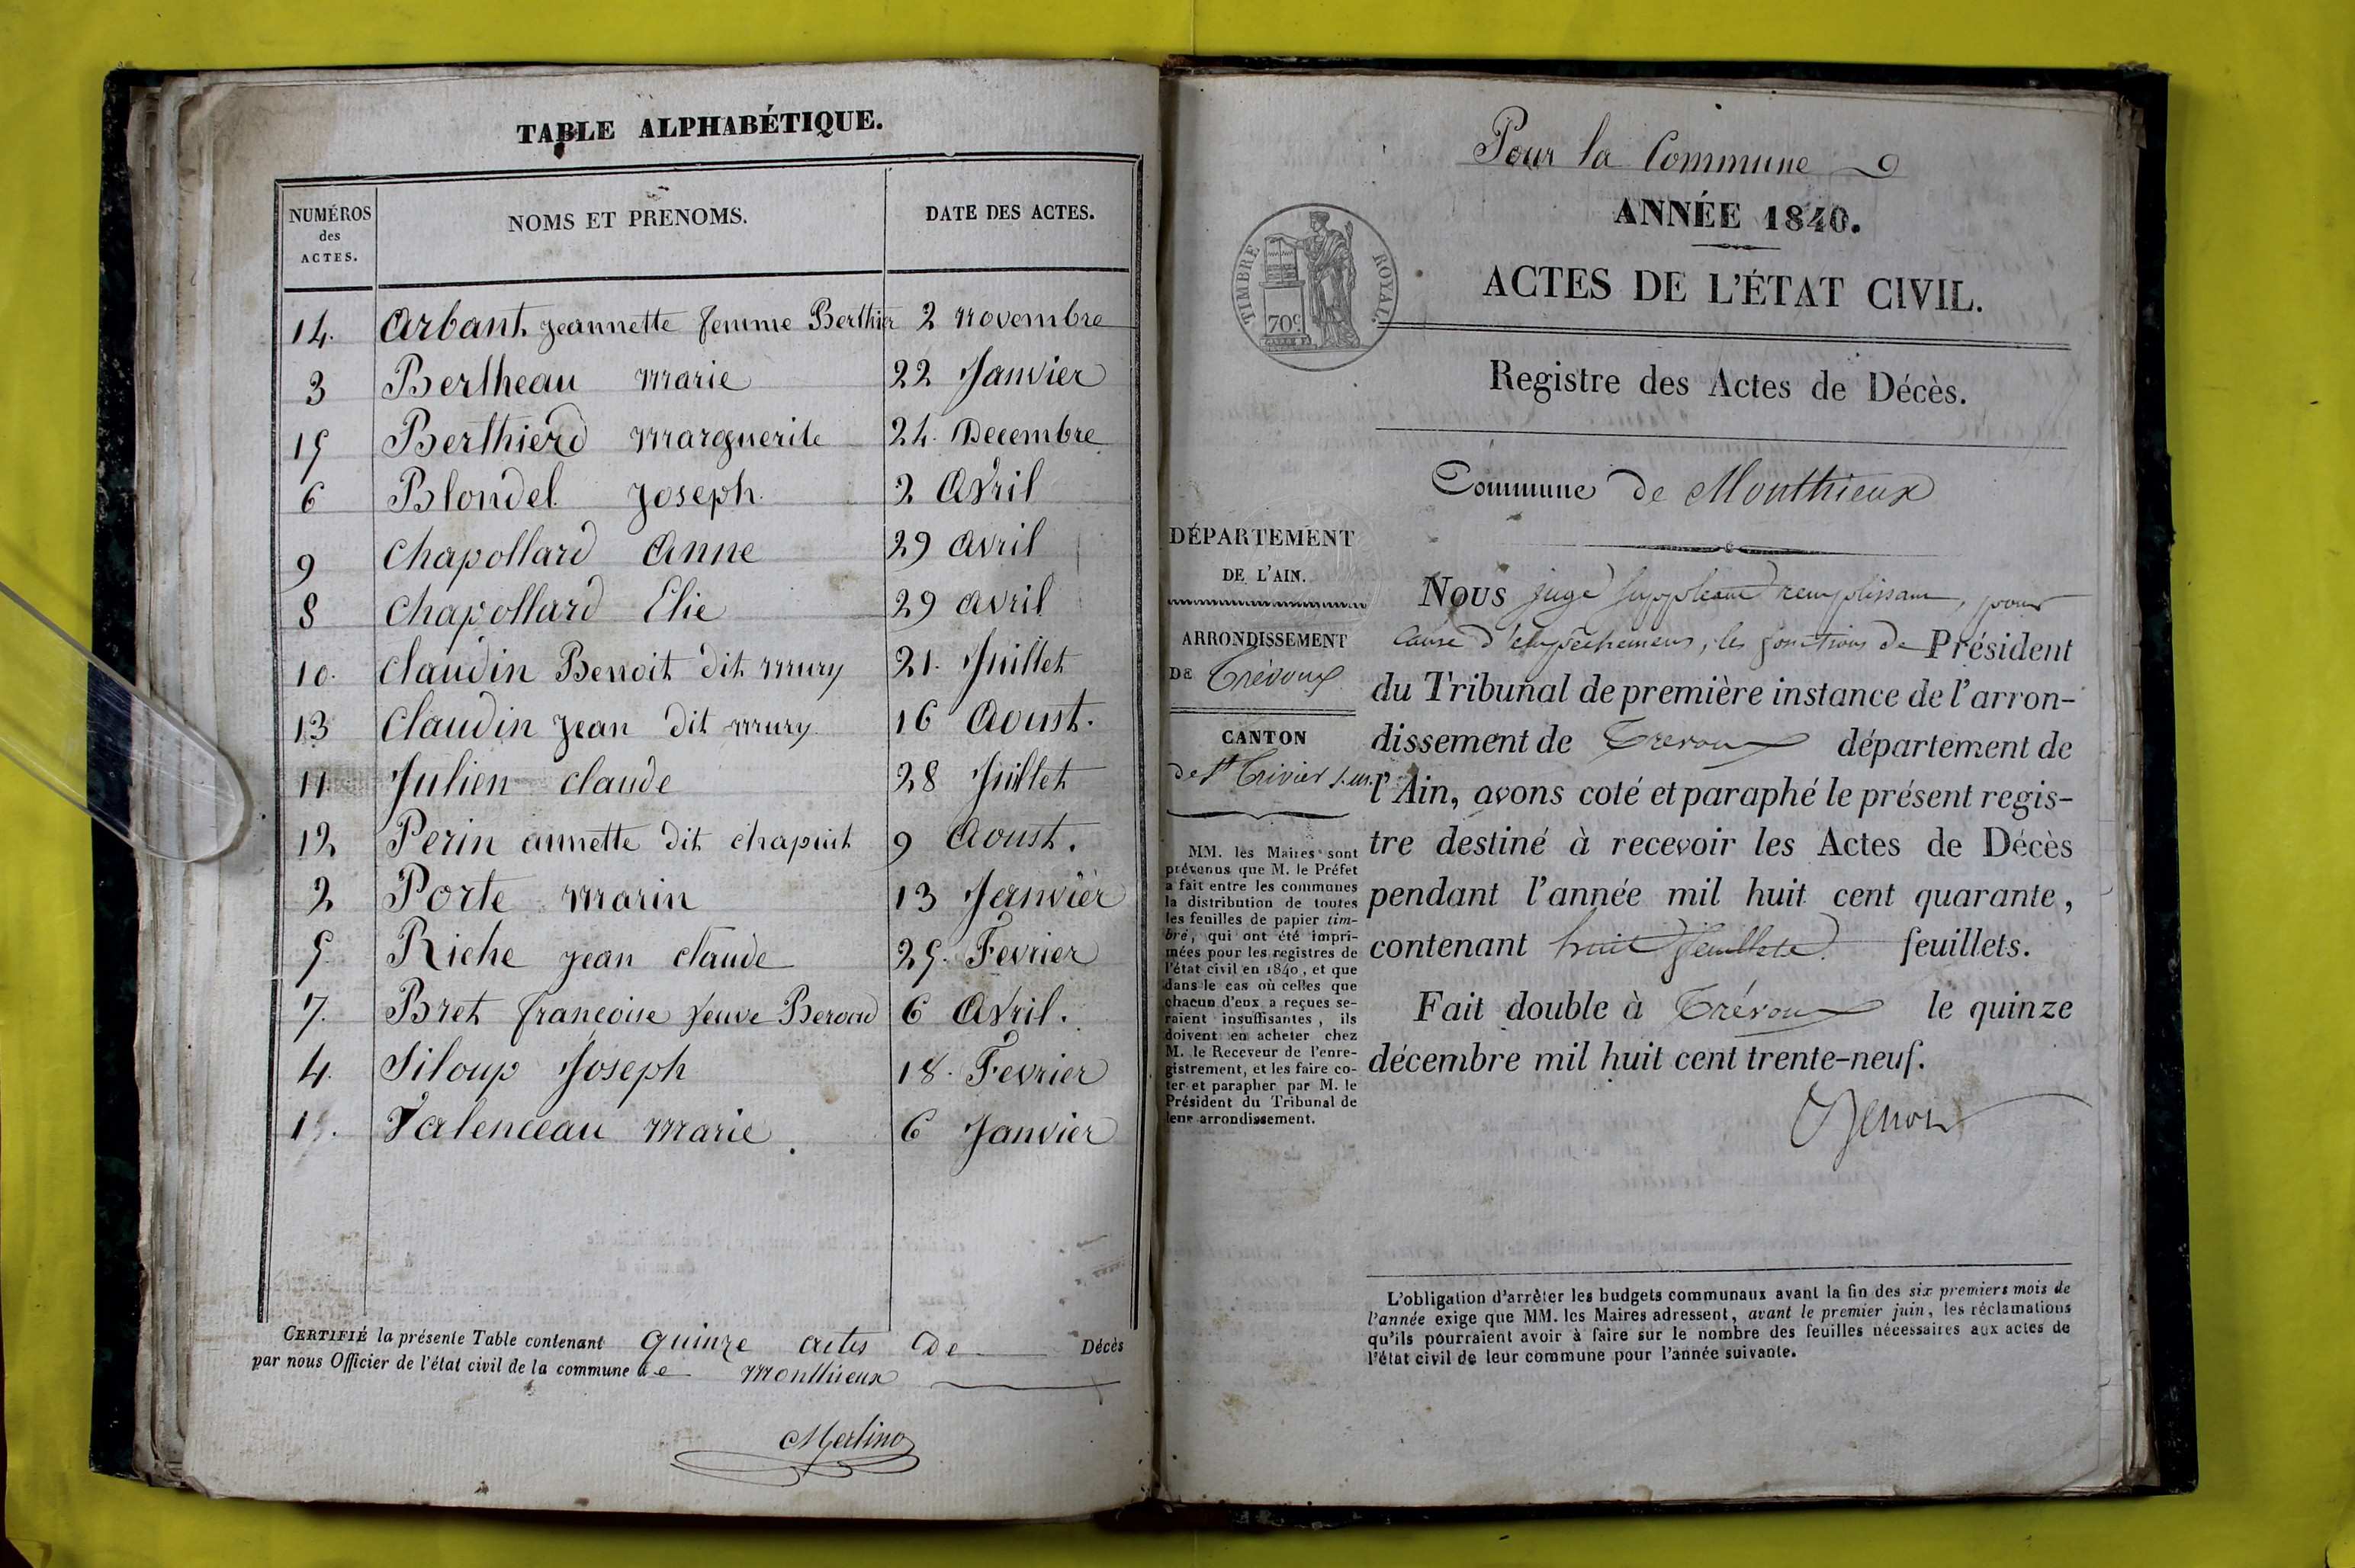 TABLE ALPHABÉTIQUE.
NUMÉROS des ACTES. NOMS ET PRENOMS. DATE DES ACTES.
14. Arbant Jeannette femme Berthier 2 Novembre
3 Bertheau Marie 22 Janvier
15 Berthierd Marguerite 24. Decembre
6 Blondel Joseph. 2 Avril
9 Chapollard Anne 29 Avril
8 Chapollard Elie 29 Avril
10. Claudin Benoit dit Mury 21. Juillet
13 Claudin Jean dit Mury 16 Aoust.
11 Julien Claude 28 Juillet
12 Perin annette dit chapuit 9 Aoust.
2 Porte Marin 13 Janvier
5. Riche Jean Claude 25. Fevrier
7. Bret francoise veuve 6 Avril.
4. Siloup Joseph 18. Fevrier
1. Valenceau Marie. 6 Janvier
CERTIFIÉ la présente Table contenant quinze actes de Décès
par nous Officier de l'état civil de la commune de Monthieux
Merlino
Pour la Commune
ANNÉE 1840.
TIMBRE ROYAL.
70c
ACTES DE L'ÉTAT CIVIL.
Registre des Actes de Décès.
Commune de Monthieux
DÉPARTEMENT
DE L'AIN.
ARRONDISSEMENT
DE Trévoux
CANTON
de St Trivier sur
MM. les Maires sont
prévenus que M. le Préfet
a fait entre les communes
la distribution de toutes
les feuilles de papier tim-
bré, qui ont été impri-
mées pour les registres de
l'état civil en 1840, et que
dans le cas où celles que
chacun d'eux a reçues se-
raient insuffisantes, ils
doivent en acheter chez
M. le Receveur de l'enre-
gistrement, et les faire co-
ter et parapher par M. le
Président du Tribunal de
leur arrondissement.
Nous juge suppléant remplissant, pour
cause d'empêchement, les fonctions de Président
du Tribunal de première instance de l'arron-
dissement de Trevoux département de
l'Ain, avons coté et paraphé le présent regis-
tre destiné à recevoir les Actes de Décès
pendant l'année mil huit cent quarante,
contenant huit feuillets feuillets.
Fait double à Trévoux le quinze
décembre mil huit cent trente-neuf.
L'obligation d'arrêter les budgets communaux avant la fin des six premiers mois de
l'année exige que MM. les Maires adressent, avant le premier juin, les réclamations
qu'ils pourraient avoir à faire sur le nombre des feuilles nécessaires aux actes de
l'état civil de leur commune pour l'année suivante.